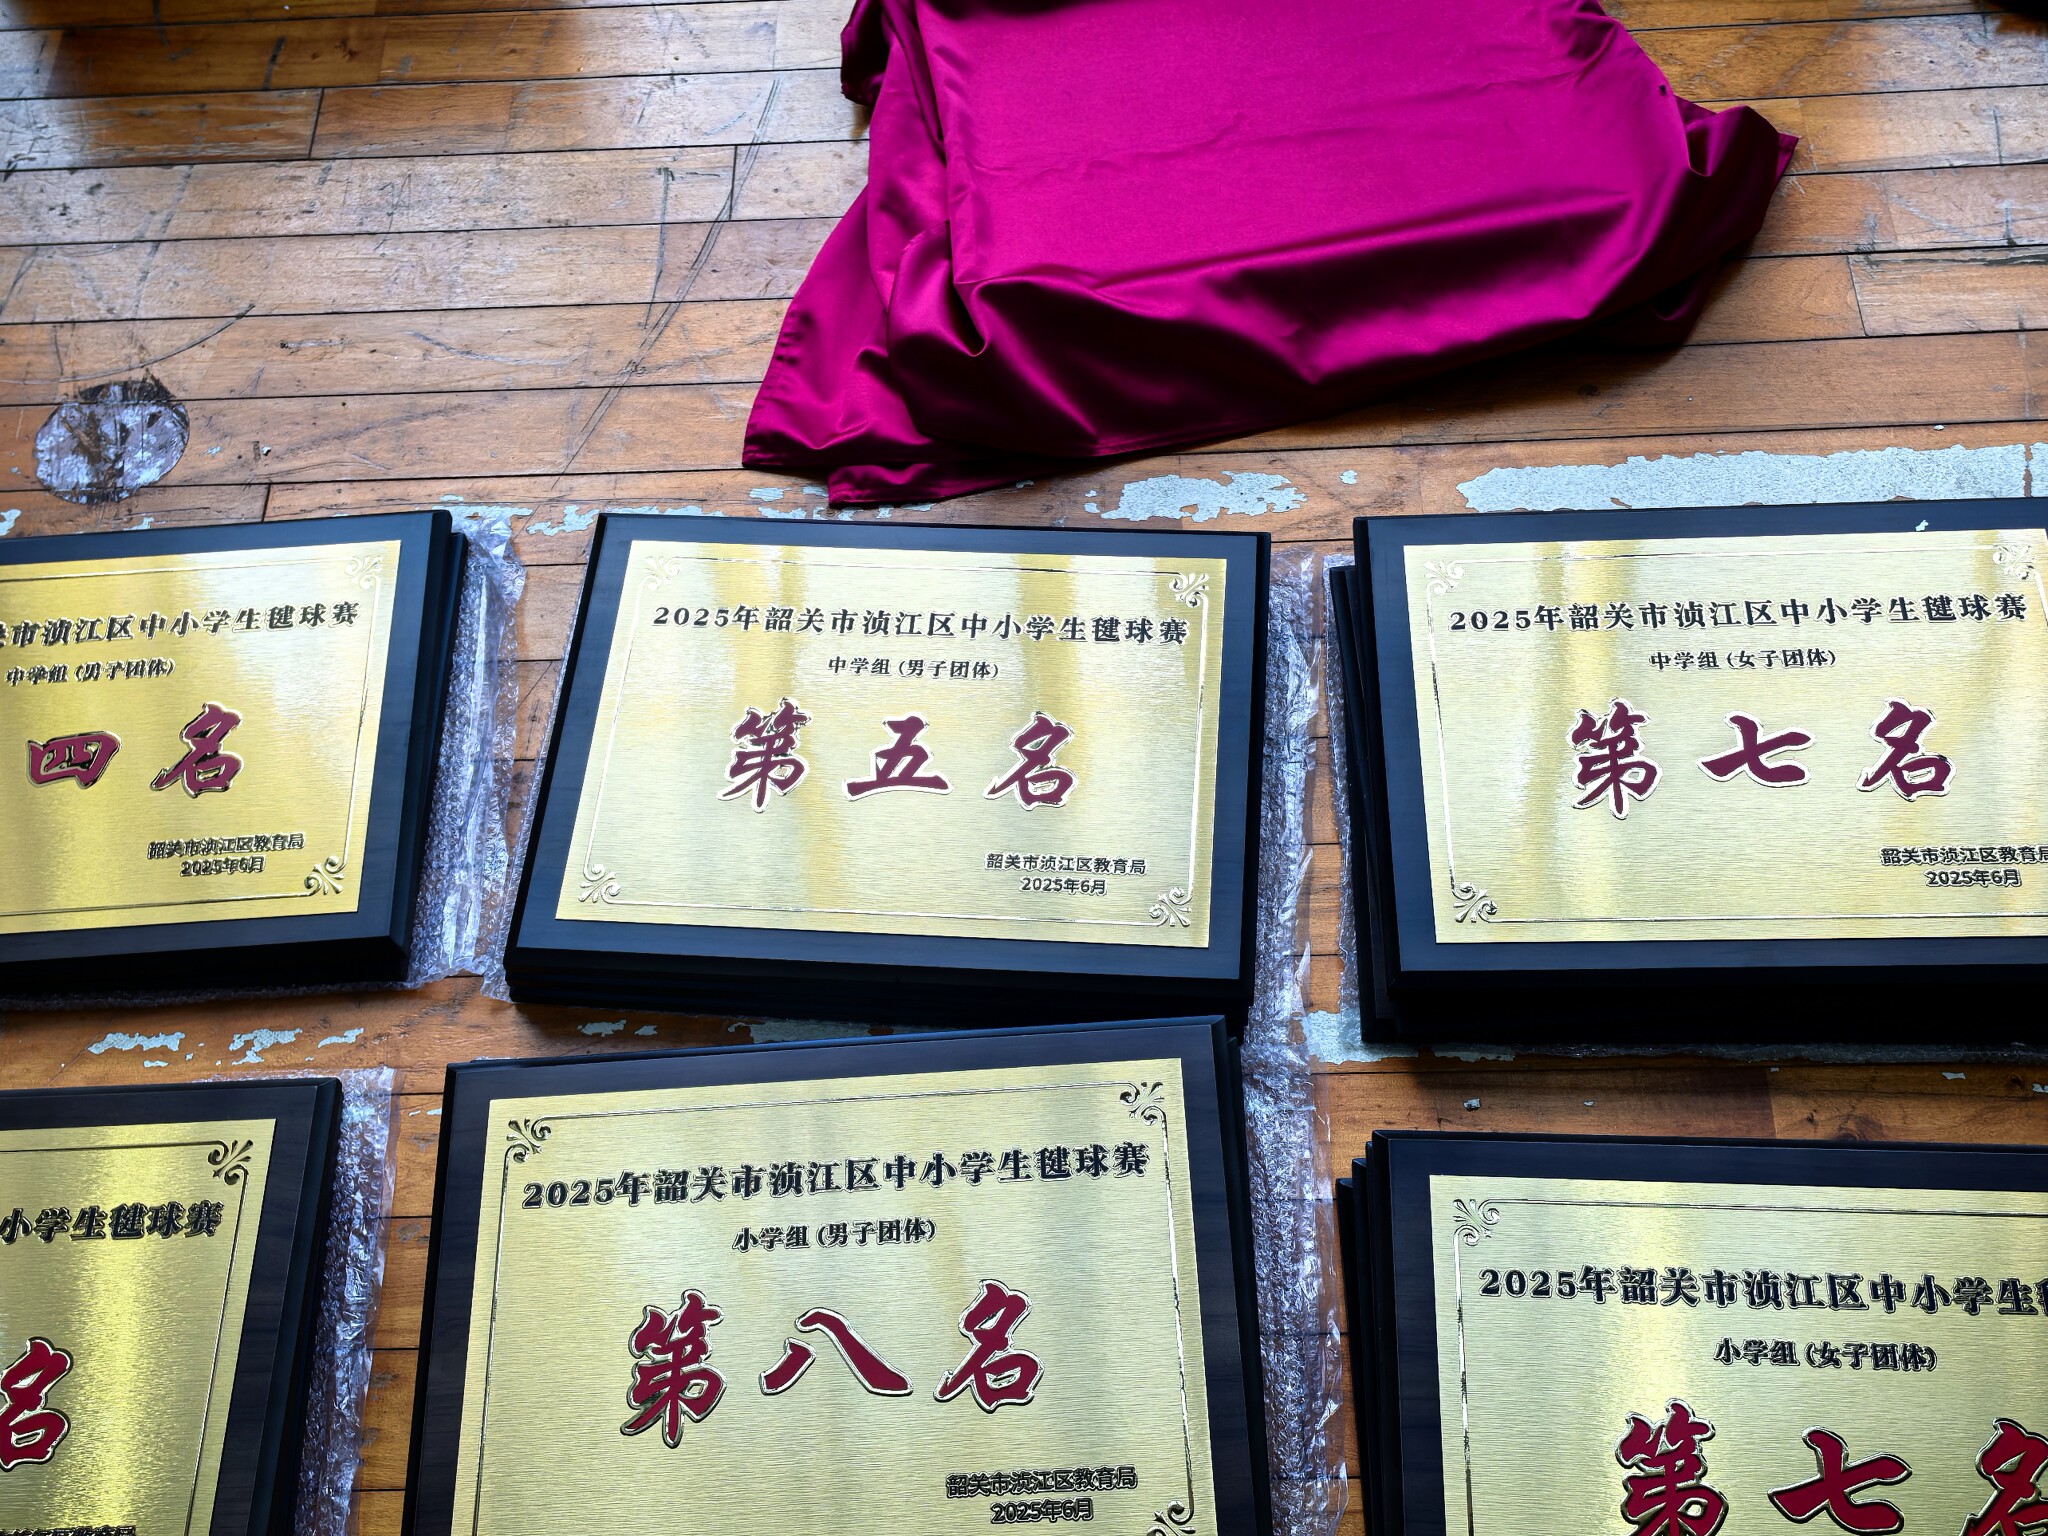 关市浈江区中小学生毽球赛
中学组 (男子团体)
四名
韶关市浈江区教育局
2025年6月
2025年韶关市浈江区中小学生毽球赛
中学组 (男子团体)
第五名
韶关市浈江区教育局
2025年6月
2025年韶关市浈江区中小学生毽球赛
中学组 (女子团体)
第七名
韶关市浈江区教育局
2025年6月
小学生毽球赛
名
2025年韶关市浈江区中小学生毽球赛
小学组 (男子团体)
第八名
韶关市浈江区教育局
2025年6月
2025年韶关市浈江区中小学生
小学组 (女子团体)
第七名